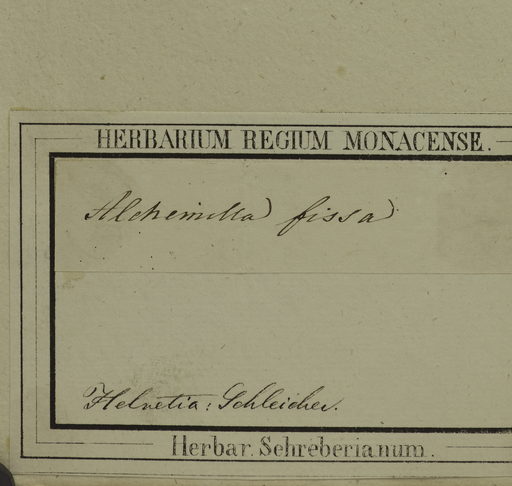 HERBARIUM REGIUM MONACENSE.
Alchemilla fissa
Helvetia: Schleicher.
Herbar. Schreberianum.